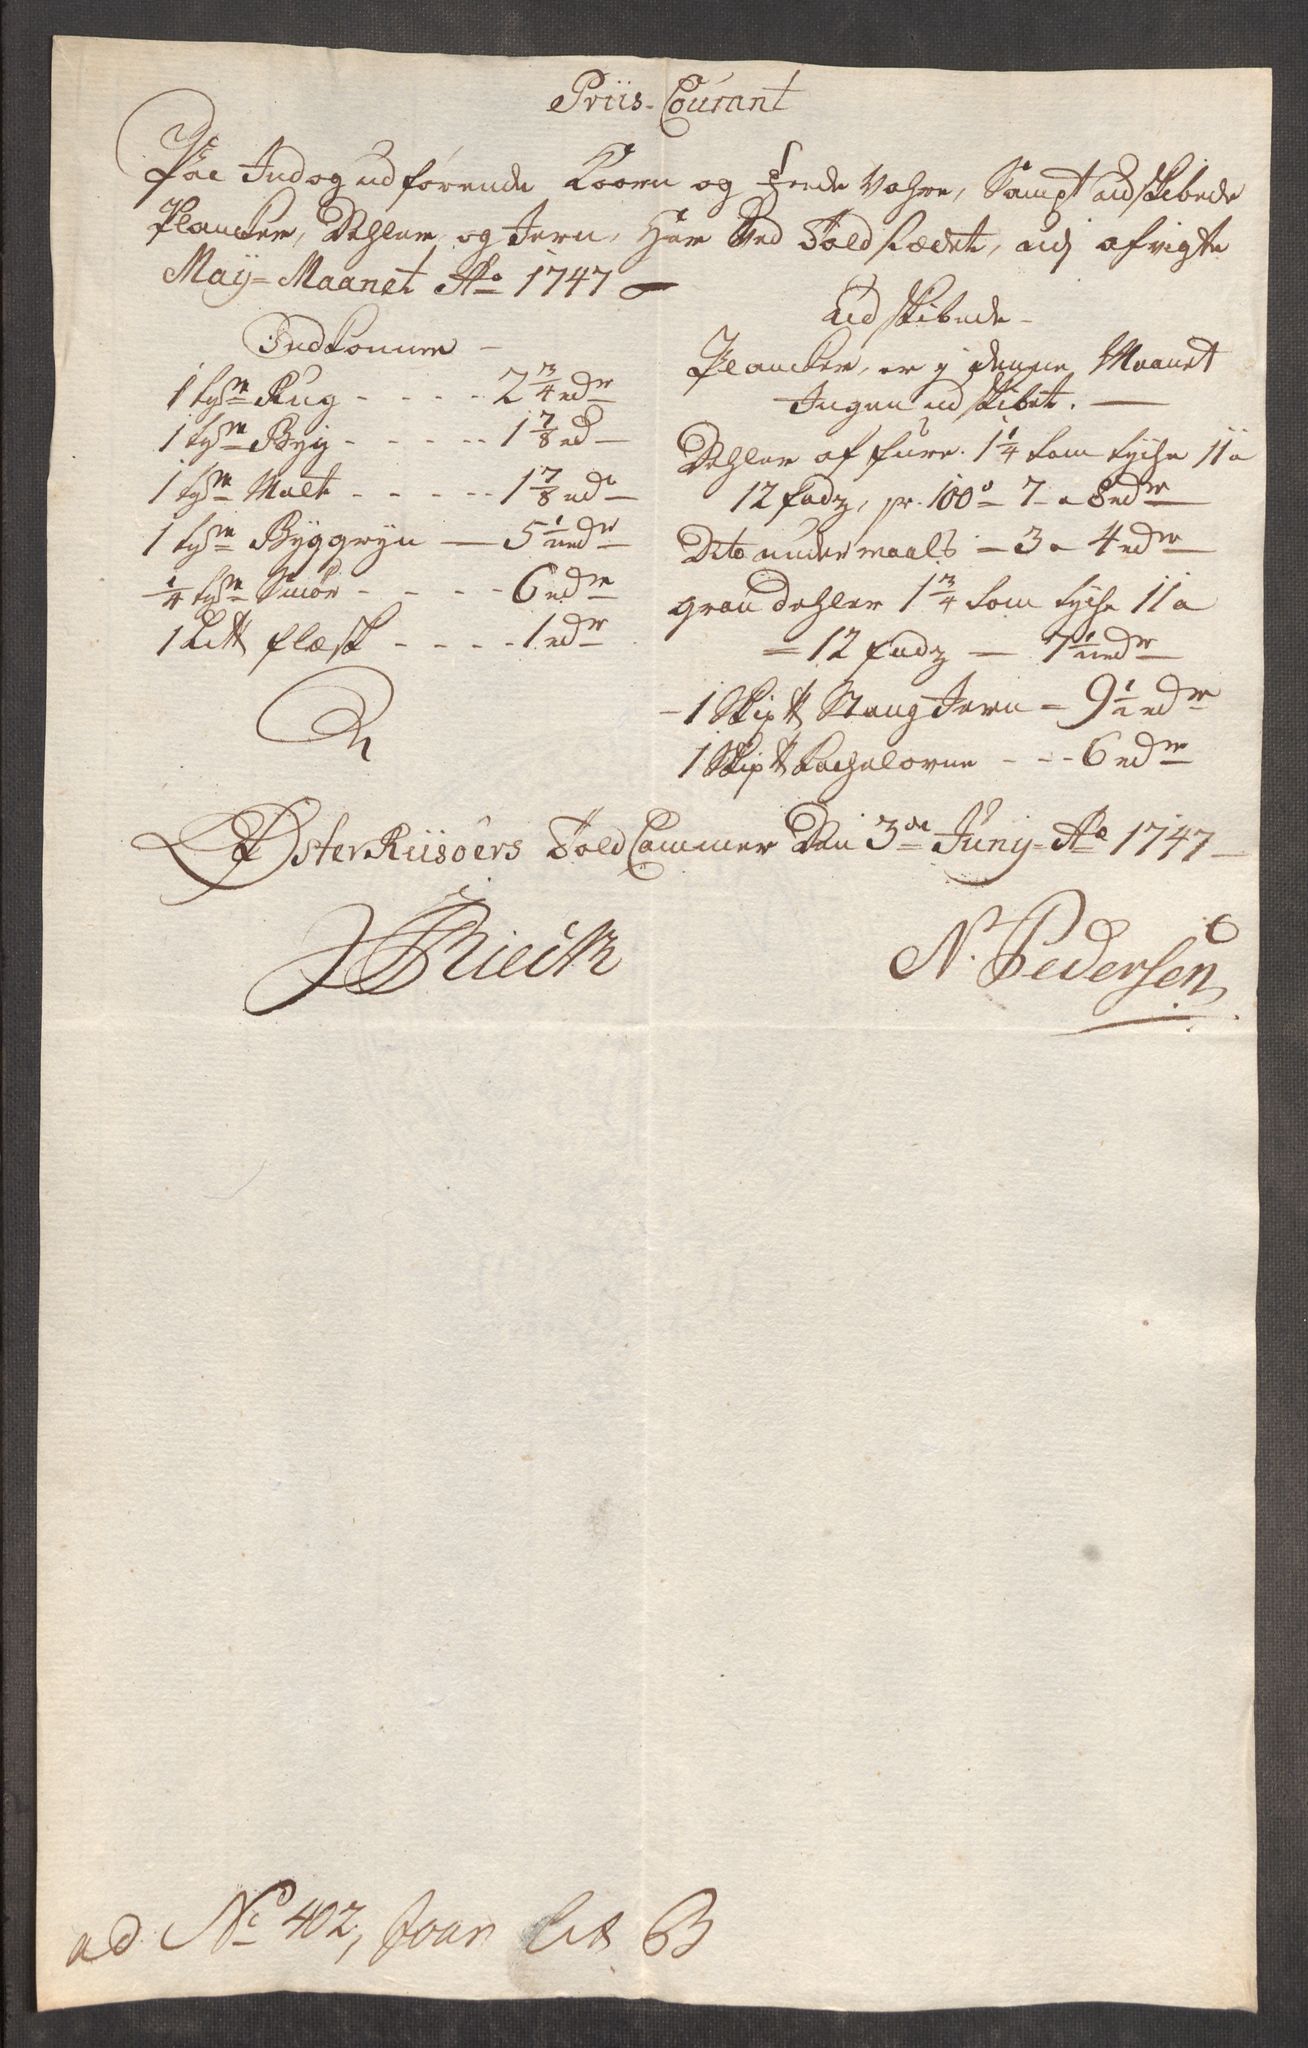 Priis-Courant
Paa Ind og udförende Koorn og fæede Vahre, Sampt udskibede
Plancker, Dehler og Jern, Her Ved Toldstædet, udj afvigte
Maÿ-Maanet Ao 1747
Indkomne
1 tyn Rug - - - - 2 3/4 rdr
1 tyn Byg - - - - - 1 7/8 rd
1 tyn Malt - - - - - 1 7/8 rdr
1 tyn Byggryn — 5 1/2 rdr
1/4 tyn Smör - - - - 6 rdr
1 L℔ flæsk - - - - 1 rdr
Udskibede
Plancker, er y denne Maanet
Ingen udskibet. —
Dehler af furr. 1 1/4 tom tyche 11 a
12 fodz, pr. 100o 7 a 8 rdr
Dito undermaals - 3 a 4 rdr
gran dehler 1 3/4 tom tyche 11 a
= 12 fodz — 7 1/2 rdr
- 1 Skip℔ Stang Jern = 9 1/2 rdr
1 Skip℔ Kachelovne - - - 6 rdr
ØsterRiisöers Told Cammer Den 3de Junÿ Ao 1747
N. Pedersen
ad No 402, Lit B